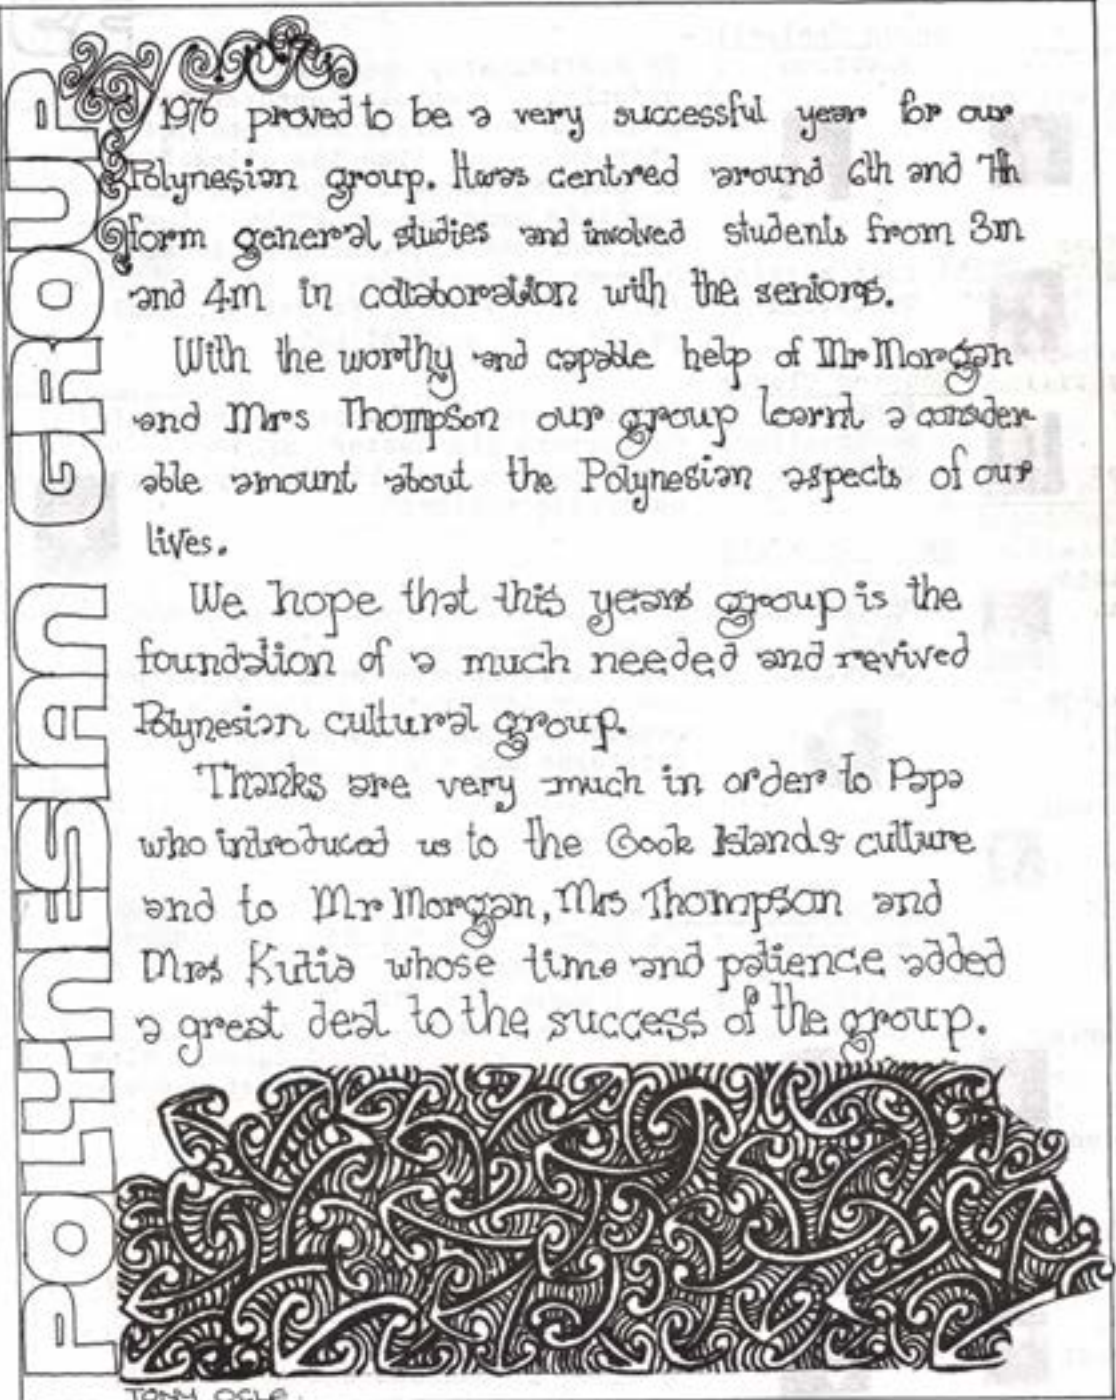 POLYNESIAN GROUP
1976 proved to be a very successful year for our
Polynesian group. It was centred around 6th and 7th
form general studies and involved students from 3m
and 4m in collaboration with the seniors.
With the worthy and capable help of Mr Morgan
and Mrs Thompson our group learnt a consider-
able amount about the Polynesian aspects of our
lives.
We hope that this years group is the
foundation of a much needed and revived
Polynesian cultural group.
Thanks are very much in order to Papa
who introduced us to the Cook Islands culture
and to Mr Morgan, Mrs Thompson and
Mrs Kutia whose time and patience added
a great deal to the success of the group.
TONY OGLE.